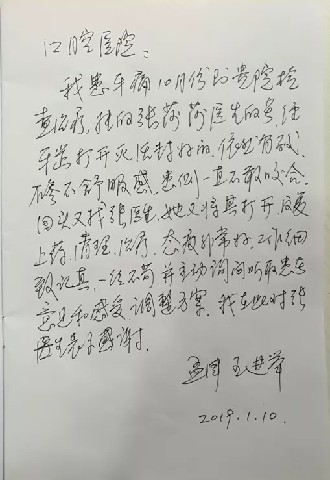 口腔医院：
我患牙痛10月份到贵院检
查治疗，挂的张莎莎医生的号，经
牙齿打开灭活封好的，依然有酸
不舒服感，患侧一直不敢咬合，
回头又找张医生，她又将其打开，反复
上药，清理，治疗，态度非常好，工作细
致认真，一丝不苟并主动询问听取患者
意见和感受调整方案。我在此对张
医生表示感谢！
2019.1.10.